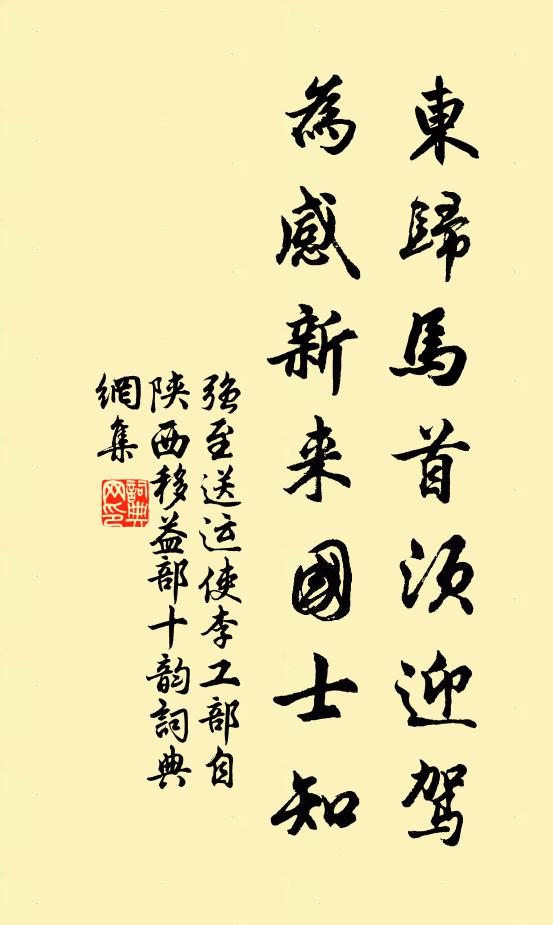 東歸馬首須迎駕
為感新来國士知
强至送运使李工部自
陝西移益部十韵詞典
網集
詞典网印